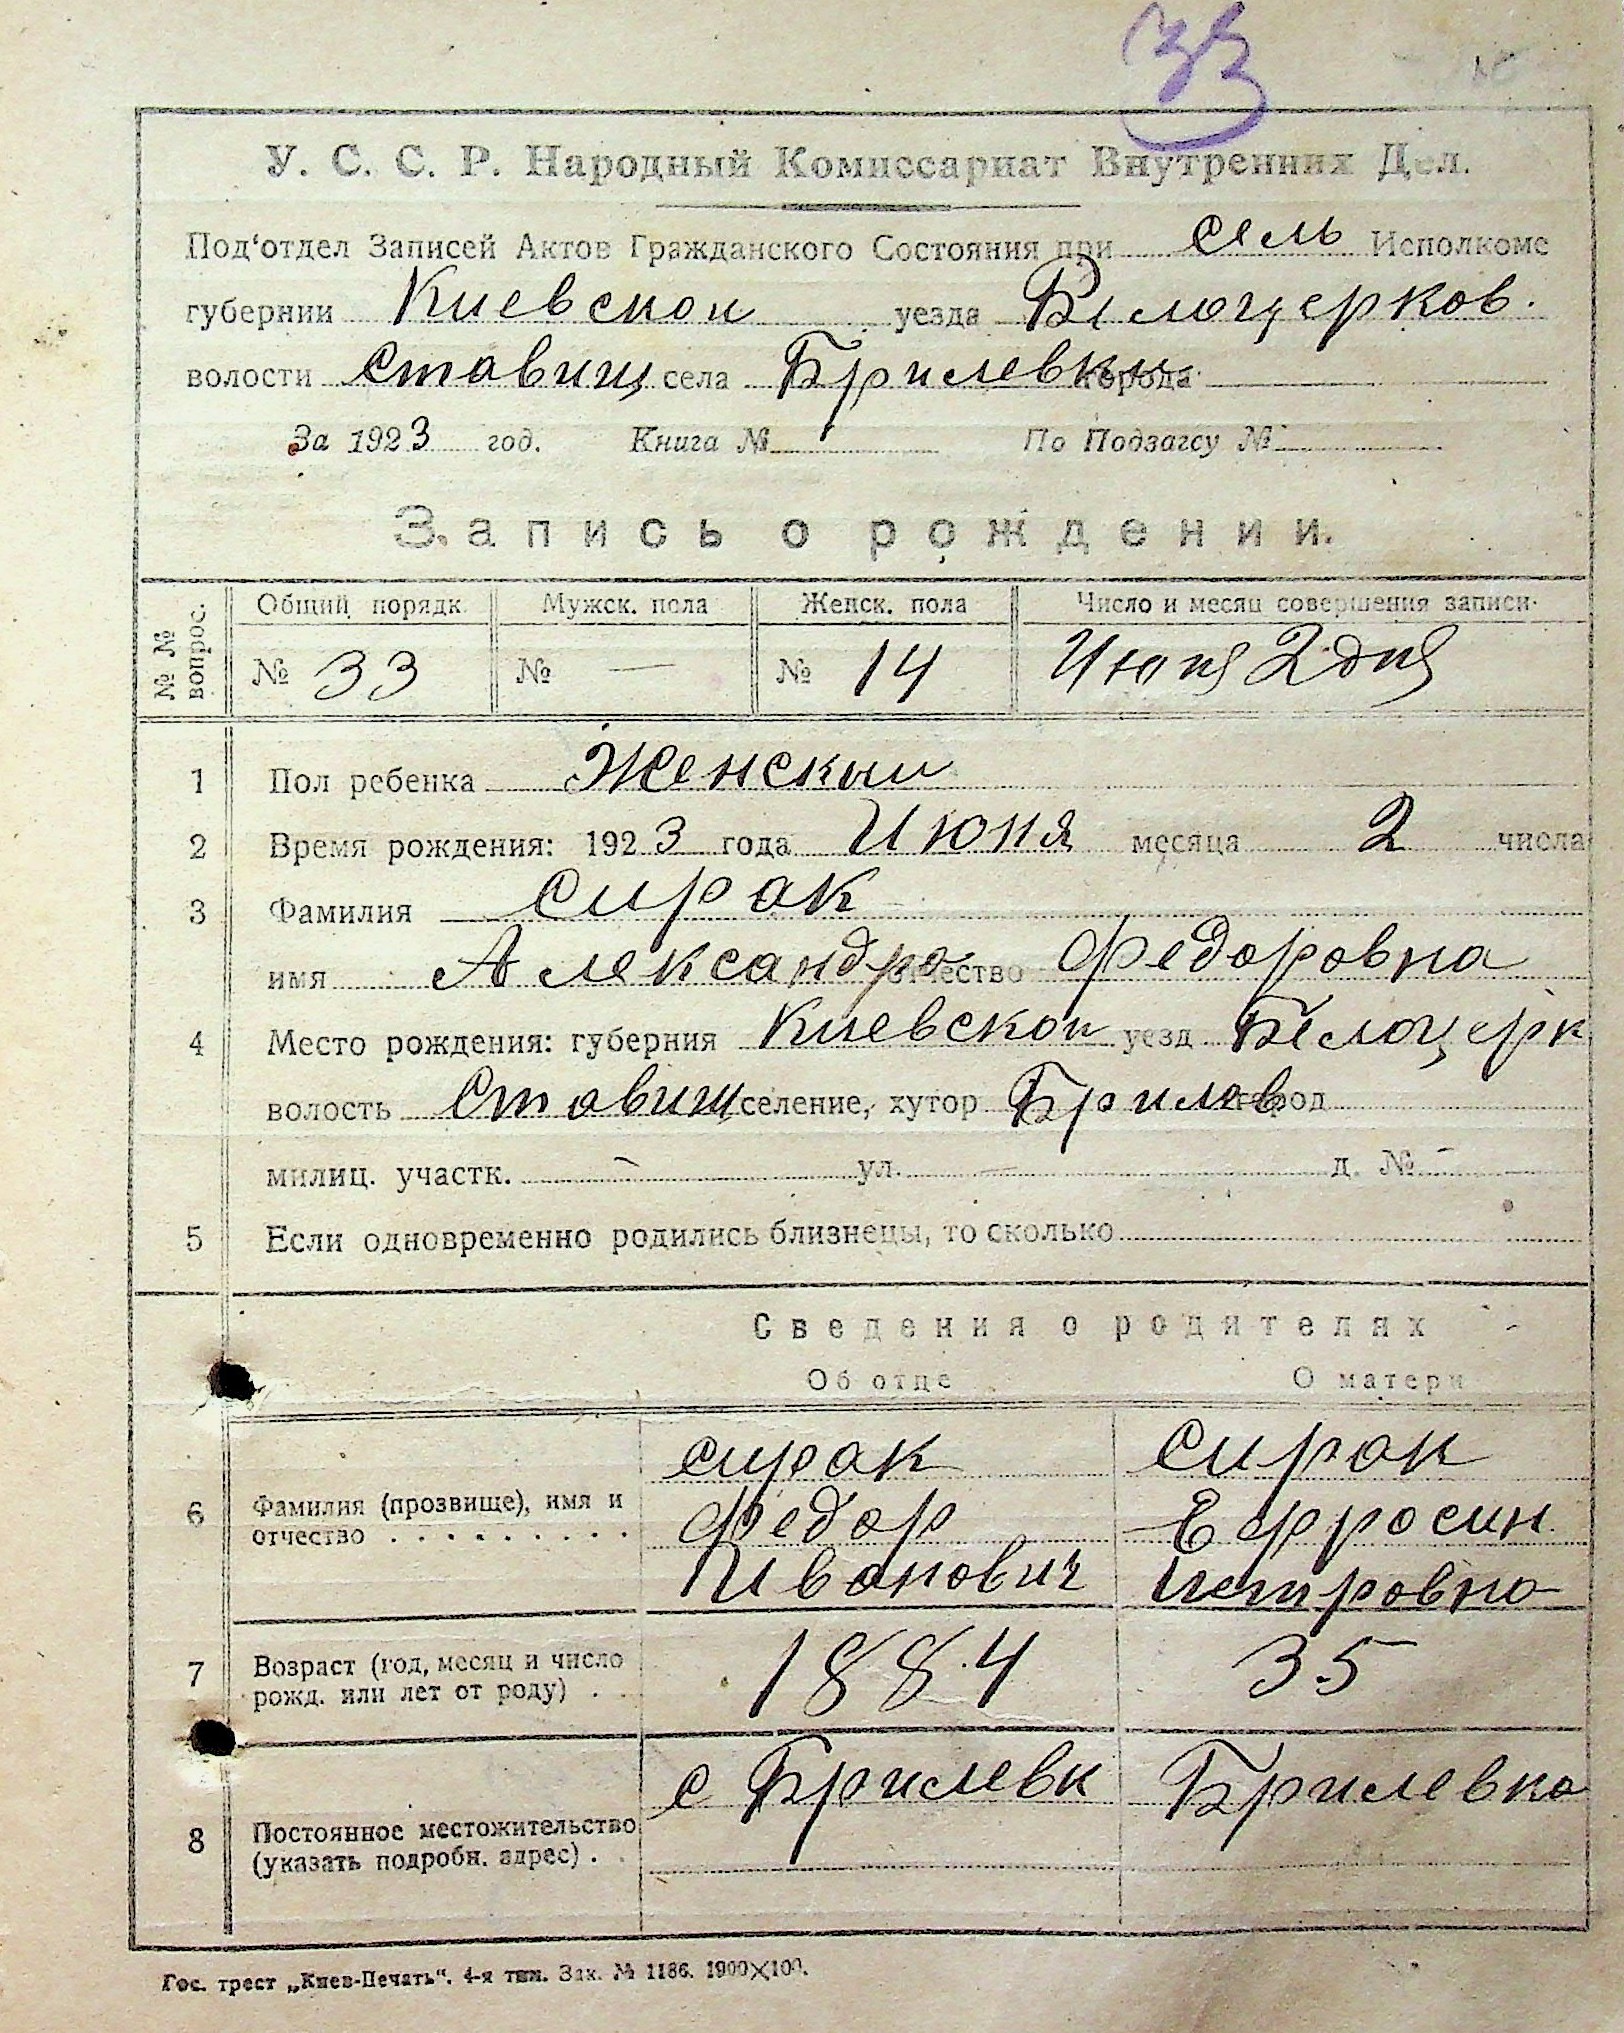 33
У. С. С. Р. Народный Комиссариат Внутренних Дел.
Под'отдел Записей Актов Гражданского Состояния при сель Исполкоме
губернии Киевской уезда Белоцерков.
волости Ставищ села Брилевки города
За 1923 год. Книга № По Подзагсу №
Запись о рождении.
№ № вопрос. Общий порядк. Мужск. пола Женск. пола Число и месяц совершения записи.
№ 33 № — № 14 Июня 2 дня
1 Пол ребенка Женский
2 Время рождения: 1923 года Июня месяца 2 числа
3 Фамилия Сирак
имя Александра отчество Федоровна
4 Место рождения: губерния Киевской уезд Белоцерк
волость Ставищ селение, хутор Брилев город
милиц. участк. — ул. — д. № —
5 Если одновременно родились близнецы, то сколько
Сведения о родителях
Об отце О матери
6 Фамилия (прозвище), имя и отчество . . . . . . . . . Сирак Федор Иванович Сирак Ефросин Петровна
7 Возраст (год, месяц и число рожд. или лет от роду) . . 1884 35
8 Постоянное местожительство (указать подробн. адрес) . . с Брилевк Брилевка
Гос. трест „Киев-Печать“. 4-я тип. Зак. № 1186. 1900×100.